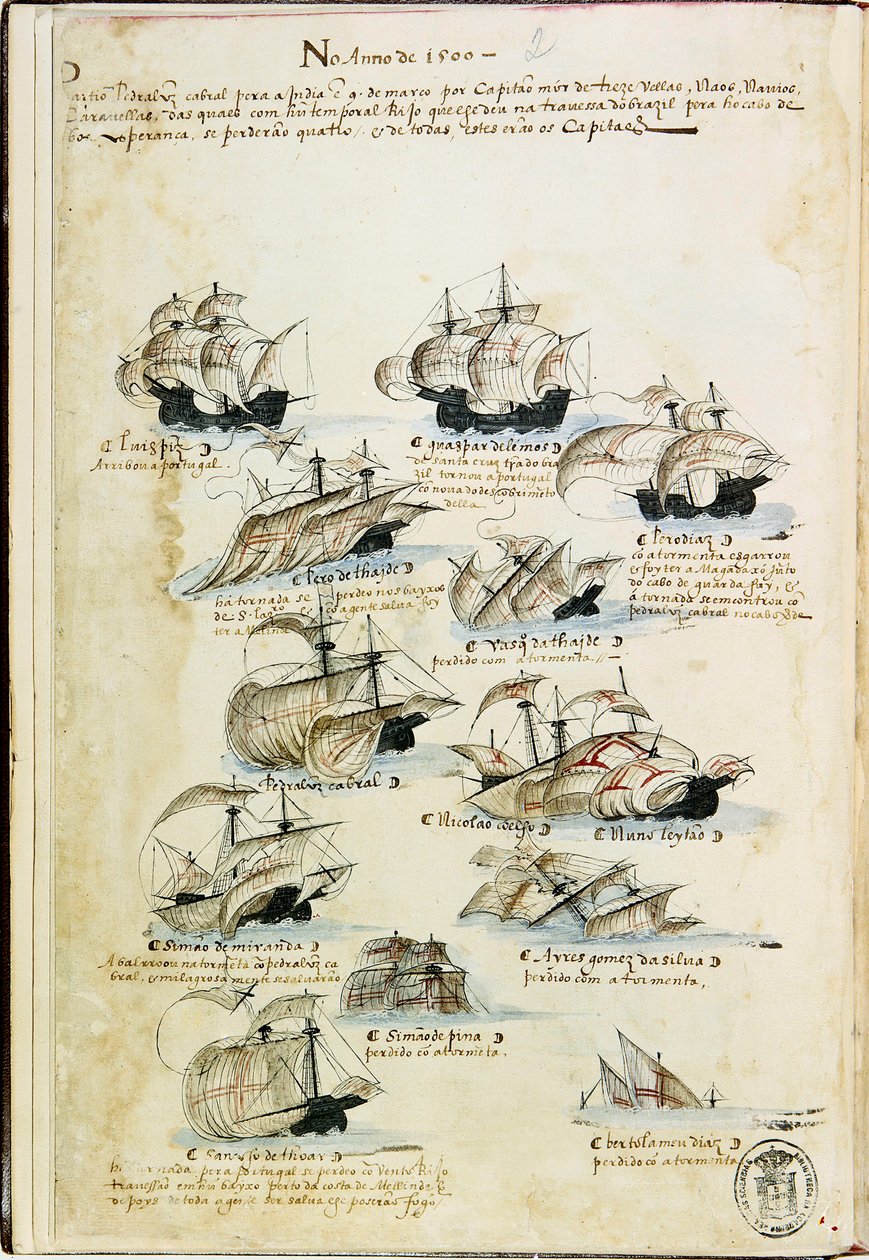 No Anno de 1500 — 2
Partio Pedraluz cabral pera a India e 9. de março por Capitão mór de treze Vellas, Naos, Navios,
Caravellas, das quaes com hũ temporal Rijo que lhe deu na travessa do brazil pera ho cabo de
boa esperança, se perderão quatro /. & de todas, estes erão os Capitães
Luis piz
Arribou a portugal.
guaspar de lemos
da santa cruz tr̃a do bra
zil tornou a portugal
cõ nova do descobrimẽto
della
Pero diaz
cõ a tormenta esgarrou
& foy ter a Magadaxó jũto
do cabo de guardafuy, &
á tornada se emcontrou cõ
pedraluz cabral no cabo verde
Pero de thajde
há tornada se perdeo nos bayxos
de S. Lazro & cõ a gente salva foy
ter a Melinde
Vasqo da thajde
perdido com a tormenta //—
Pedraluz cabral
Nicolao coelho
Nuno leytão
Simão de miranda
Abalrroou na tormẽta cõ pedraluz ca
bral, & milagrosa mente se salvarão
Ayres gomez da silva
perdido com a tormenta,
Simão de pina
perdido cõ a tormẽta,
Sancho de thoar
há tornada pera portugal se perdeo cõ vento Rijo
travessão em hũ bayxo perto da costa de Mellinde &
depoys de toda a gente ser salva lhe poserão fogo
bertolameu diaz
perdido cõ a tormenta
BIBLIOTHECA DA ACADEMIA REAL DAS SCIENCIAS